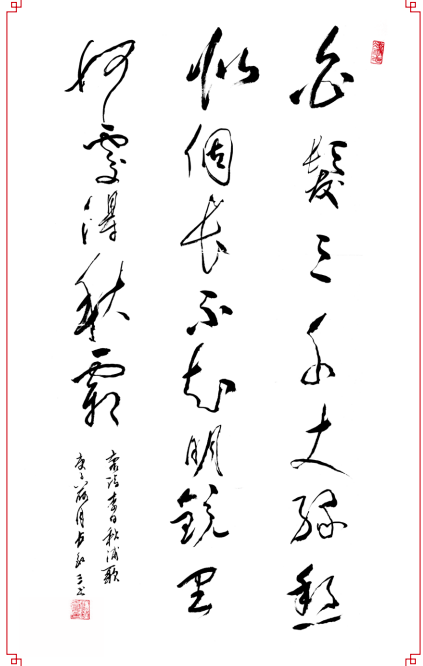 白髮三千丈緣愁
似個長不知明鏡里
何處得秋霜
詩李白秋浦歌
庚子 月 書